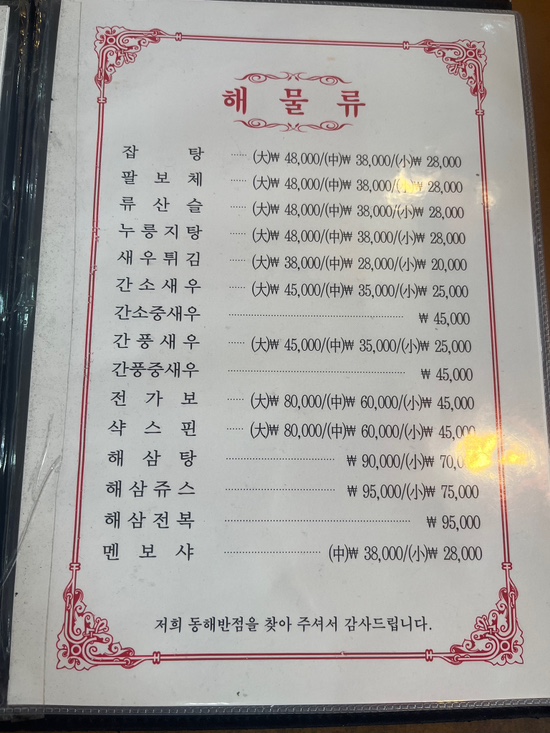 해 물 류
잡 탕 ······ (大)₩ 48,000/(中)₩ 38,000/(小)₩ 28,000
팔 보 채 ······ (大)₩ 48,000/(中)₩ 38,000/(小)₩ 28,000
류 산 슬 ······ (大)₩ 48,000/(中)₩ 38,000/(小)₩ 28,000
누 룽 지 탕 ······ (大)₩ 48,000/(中)₩ 38,000/(小)₩ 28,000
새 우 튀 김 ······ (大)₩ 38,000/(中)₩ 28,000/(小)₩ 20,000
간 소 새 우 ······ (大)₩ 45,000/(中)₩ 35,000/(小)₩ 25,000
간소중새우 ······ ₩ 45,000
간 풍 새 우 ······ (大)₩ 45,000/(中)₩ 35,000/(小)₩ 25,000
간풍중새우 ······ ₩ 45,000
전 가 보 ······ (大)₩ 80,000/(中)₩ 60,000/(小)₩ 45,000
샥 스 핀 ······ (大)₩ 80,000/(中)₩ 60,000/(小)₩ 45,000
해 삼 탕 ······ ₩ 90,000/(小)₩ 70,000
해 삼 쥬 스 ······ ₩ 95,000/(小)₩ 75,000
해 삼 전 복 ······ ₩ 95,000
멘 보 샤 ······ (中)₩ 38,000/(小)₩ 28,000
저희 동해반점을 찾아 주셔서 감사드립니다.